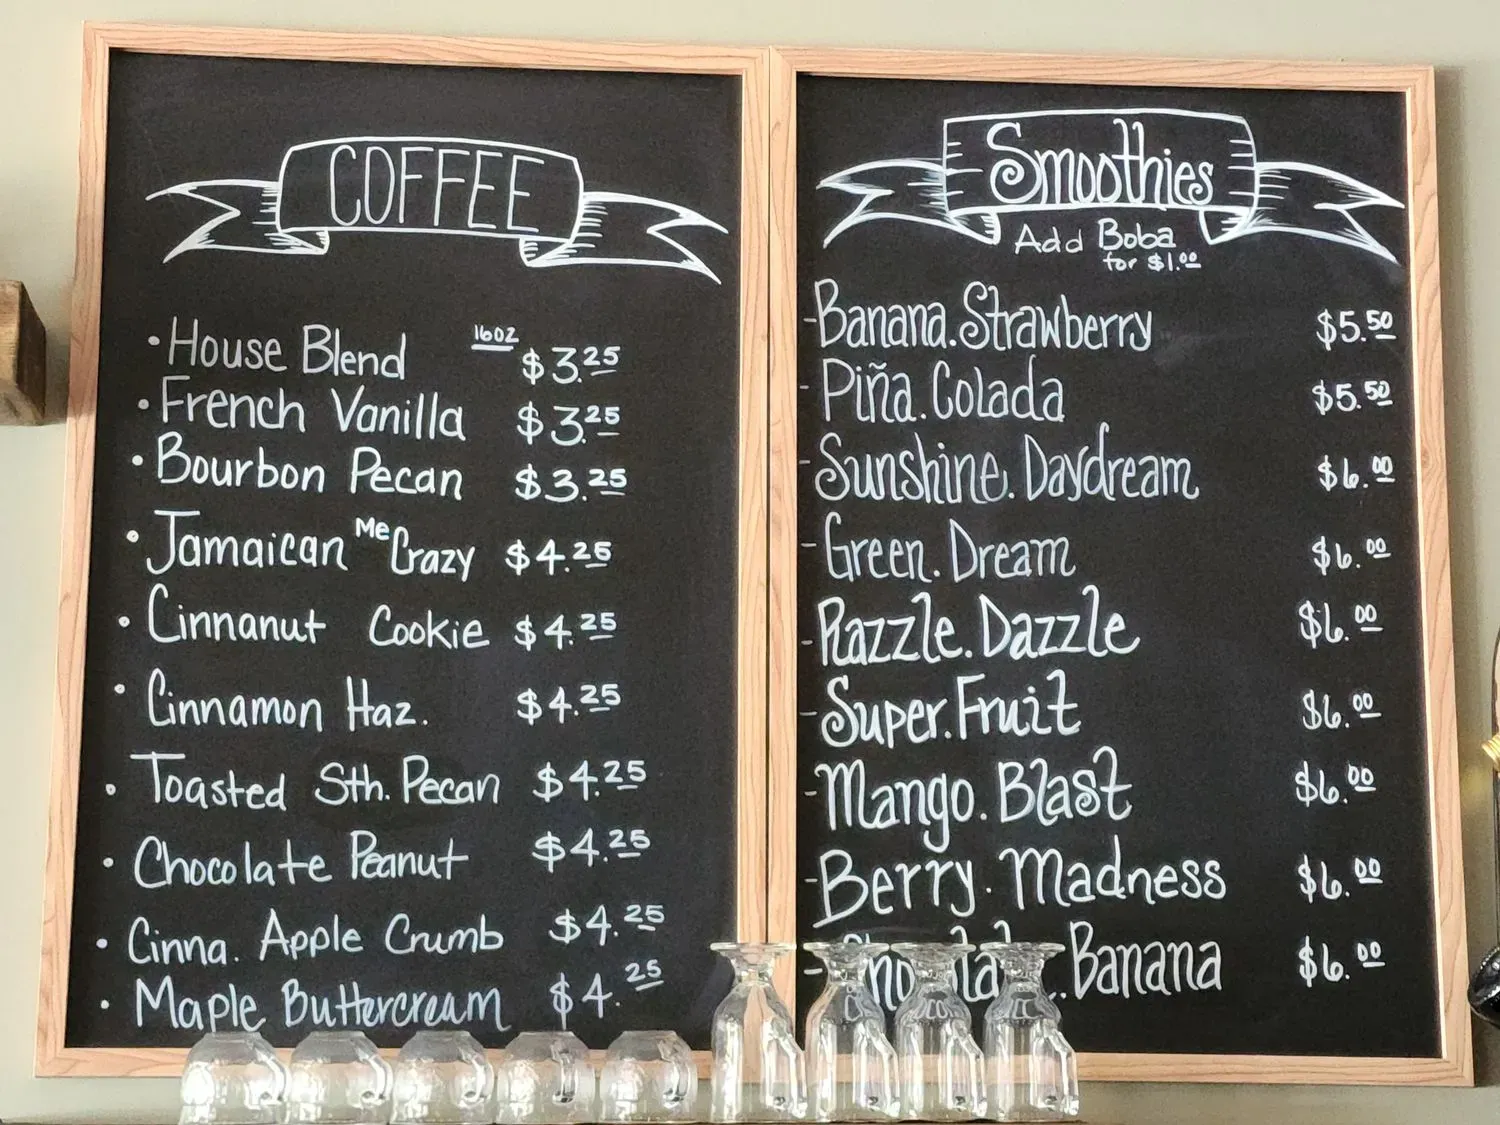 COFFEE
16oz
• House Blend $3.25
• French Vanilla $3.25
• Bourbon Pecan $3.25
• Jamaican Me Crazy $4.25
• Cinnanut Cookie $4.25
• Cinnamon Haz. $4.25
• Toasted Sth. Pecan $4.25
• Chocolate Peanut $4.25
• Cinna. Apple Crumb $4.25
• Maple Buttercream $4.25
Smoothies
Add Boba
for $1.00
- Banana.Strawberry $5.50
- Piña.Colada $5.50
- Sunshine.Daydream $6.00
- Green.Dream $6.00
- Razzle.Dazzle $6.00
- Super.Fruit $6.00
- Mango.Blast $6.00
- Berry.Madness $6.00
- Banana $6.00